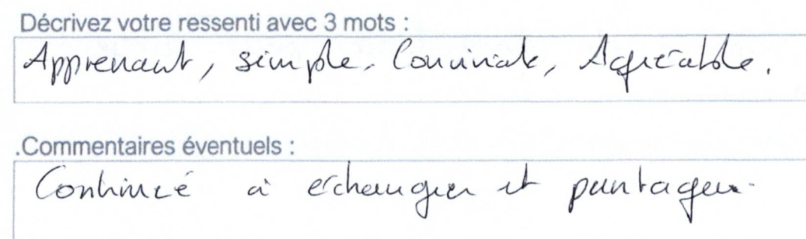 Décrivez votre ressenti avec 3 mots :
Apprenant, simple, Conviviale, Agréable.
.Commentaires éventuels :
Continué à échanger et partager.